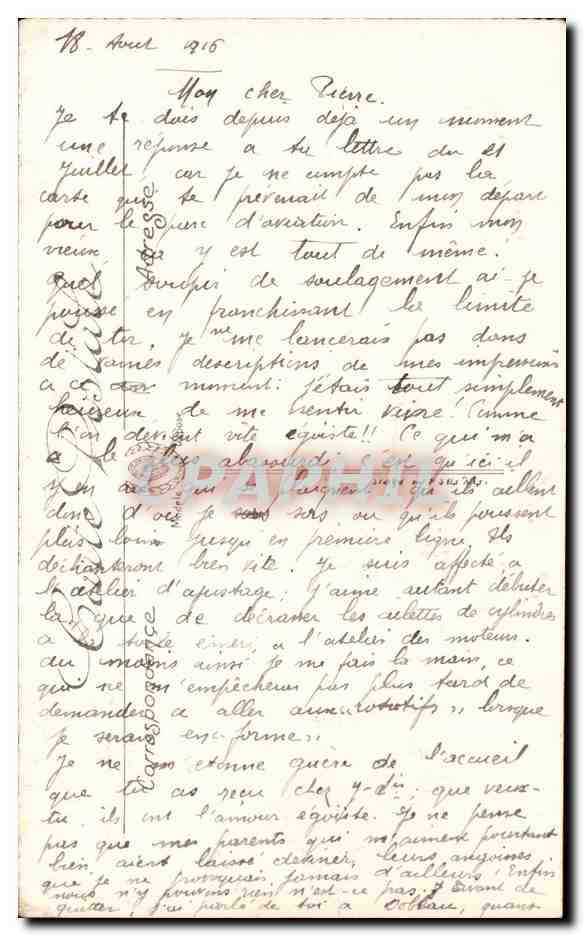 18 - Aout 1916
Mon cher Pierre.
Je te dois depuis déjà un moment
une réponse a ta lettre du 21
Juillet, car je ne compte pas la
carte qui te prévenait de mon départ
pour le parc d'aviation. Enfin mon
vieux y est tout de même.
Quel soupir de soulagement ai-je
poussé en franchissant la limite
de tir. Je ne me lancerais pas dans
de vaines descriptions de mes impressions
a ce moment: j'étais tout simplement
heureux de me sentir vivre! Comme
l'on devient vite égoïste!! Ce qui m'a
le plus abasourdi c'est qu'ici il
y en a qui se plaignent qu'ils aillent
donc d'où je sors ou qu'ils poussent
plus loin jusqu'en première ligne. Ils
déchanteront bien vite. Je suis affecté a
l'atelier d'ajustage; j'aime autant débuter
la, que de décrasser les ailettes de cylindres
a la toile émeri a l'atelier des moteurs.
du moins ainsi je me fais la main, ce
qui ne m'empêchera pas plus tard de
demander a aller aux rotatifs, lorsque
je serai "en forme"
Je ne m'étonne guère de l'accueil
que tu as reçu chez ; que veux-
tu ils ont l'amour égoïste. Je ne pense
pas que mes parents qui m'aiment pourtant
bien aient laissé deviner leurs angoisses
que je ne provoquais jamais d'ailleurs! Enfin
nous n'y pouvons rien n'est-ce pas? Avant de
quitter, j'ai parlé de toi a
Carte Postale
Correspondance
Adresse
DELCAMPE